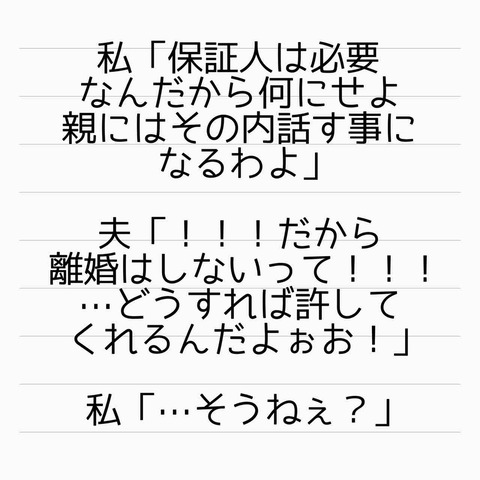 私「保証人は必要
なんだから何にせよ
親にはその内話す事に
なるわよ」
夫「！！！だから
離婚はしないって！！！
…どうすれば許して
くれるんだよぉお！」
私「…そうねぇ？」